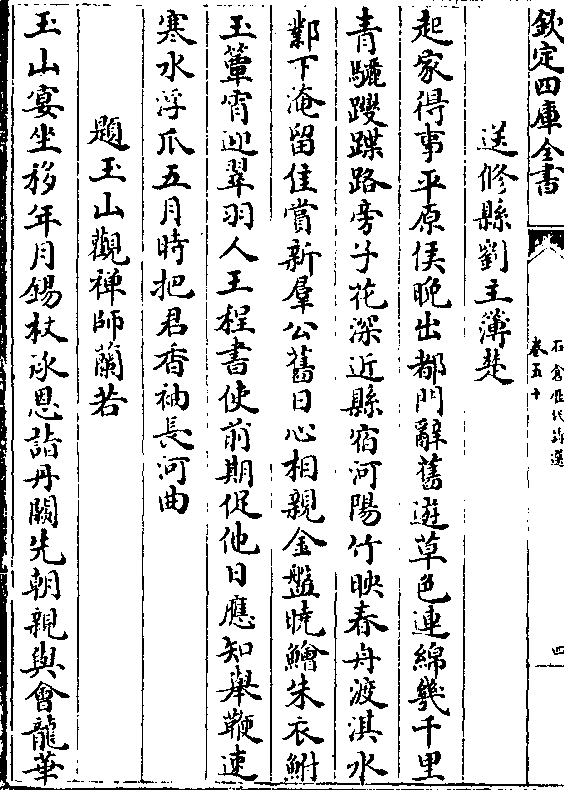 欽定四庫全書
石倉歷代詩選
卷五十
四
送修縣劉主簿楚
起家得事平原侯晚出都門辭舊遊草色連綿幾千里
青驪躞蹀路旁子花深近縣宿河陽竹映春舟渡淇水
鄴下淹留佳賞新羣公舊日心相親金盤曉鱠朱衣鮒
玉簟宵迎翠羽人王程書使前期促他日應知舉鞭速
寒水浮爪五月時把君香袖長河曲
題玉山觀禪師蘭若
玉山宴坐移年月錫杖承恩詣丹闕先朝親與會龍華